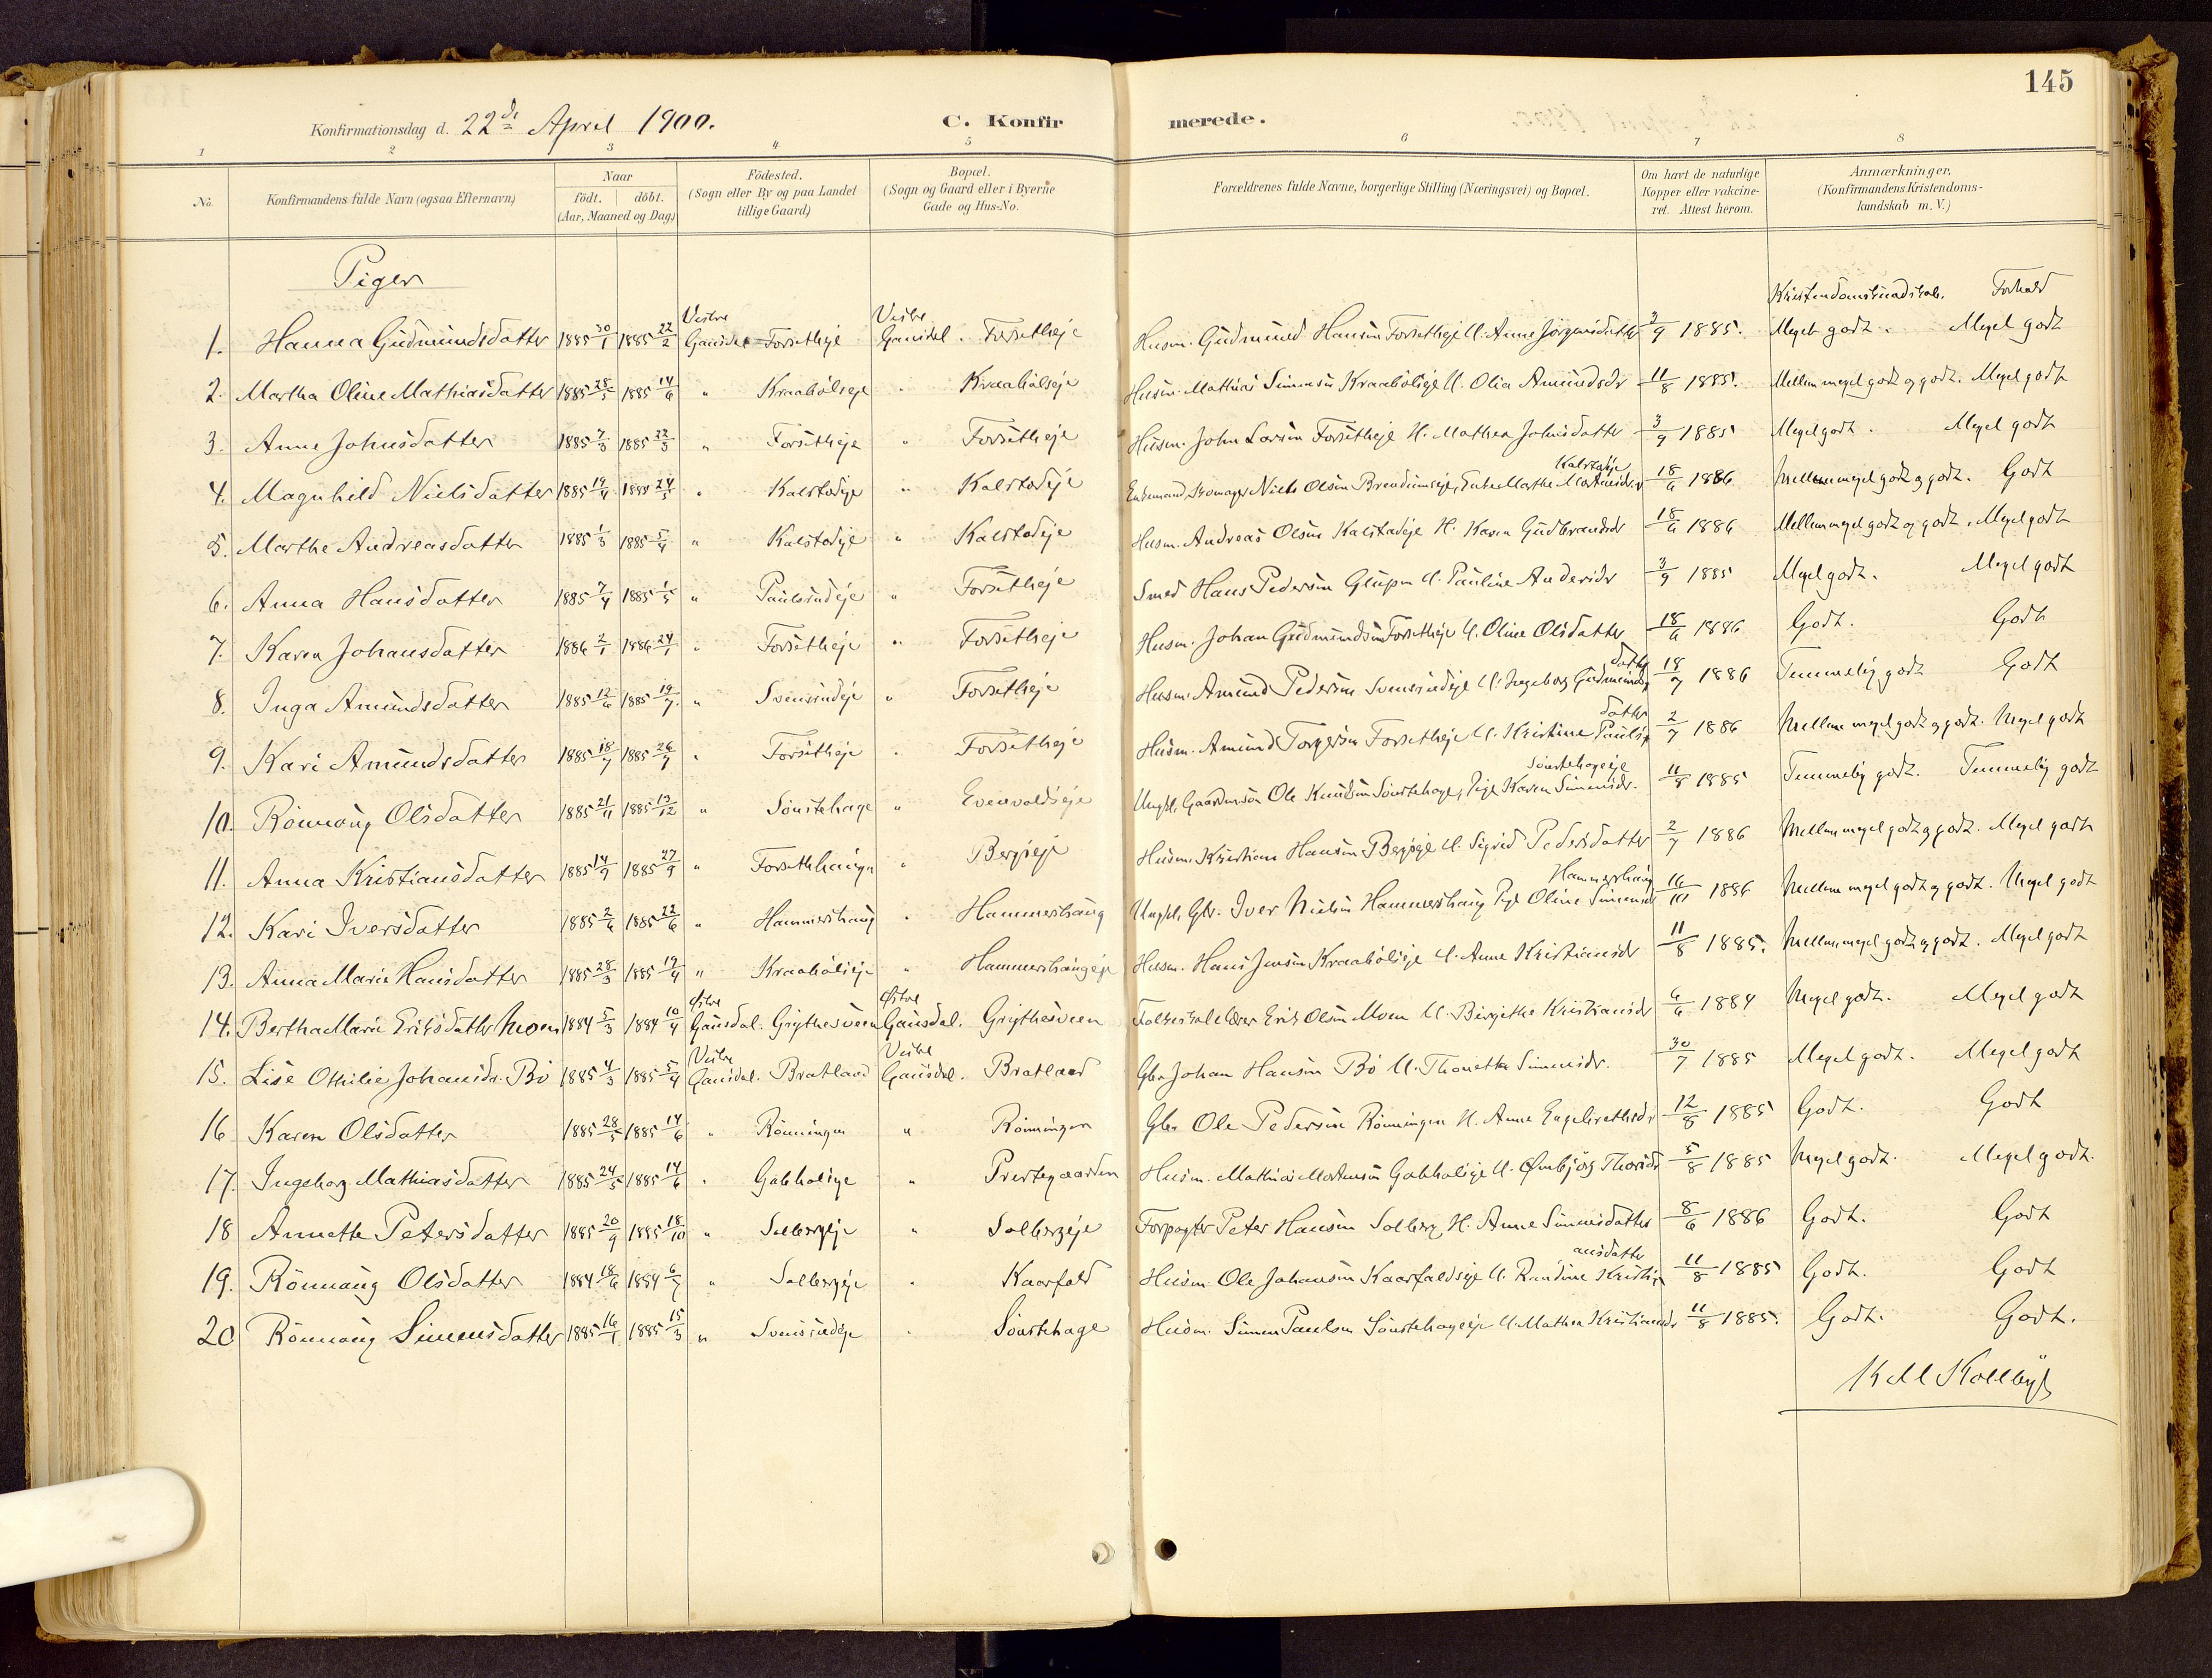 145
Konfirmationsdag d. 22de April 1900.
C. Konfirmerede.
1 2 3 4 5 6 7 8
No. Konfirmandens fulde Navn (ogsaa Efternavn) Naar födt. döbt. (Aar, Maaned og Dag) Födested. (Sogn eller By og paa Landet tillige Gaard) Bopæl. (Sogn og Gaard eller i Byerne Gade og Hus-No. Forældrenes fulde Navne, borgerlige Stilling (Næringsvei) og Bopæl. Om havt de naturlige Kopper eller vakcineret. Attest herom. Anmærkninger, (Konfirmandens Kristendomskundskab m. V.)
Piger
Kristendomskundskab. Forhold
1. Hanna Gudmundsdatter 1885 30/1 1885 22/2 Vestre Gausdal Forsetheje Vestre Gausdal. Forsetheje Husm. Gudmund Hansen Forsetheje H. Anne Jörgensdatter 3/9 1885. Meget godt. Meget godt
2. Martha Oline Mathiasdatter 1885 28/5 1885 14/6 " Kraabölseje " Kraabölseje Husm. Mathias Simensen Kraaböleje H. Olia Amundsdr 11/8 1885. Mellem meget godt og godt. Meget godt
3. Anne Johnsdatter 1885 7/3 1885 22/3 " Forsetheje " Forsetheje Husm. John Larsen Forsetheje H. Mathea Johnsdatter 3/9 1885 Meget godt. Meget godt
4. Magnhild Nielsdatter 1885 19/4 1885 24/5 " Kalstadeje " Kalstadeje Enkemand, Skomager Niels Olsen Enke Marthe Kalstadeje 18/6 1886 Mellem meget godt og godt. Godt
5. Marthe Andreasdatter 1885 1/3 1885 5/4 " Kalstadeje " Kalstadeje Husm. Andreas Olsen Kalstadeje H. Karen Gudbrandsdr 18/6 1886 Mellem meget godt og godt. Meget godt
6. Anna Hansdatter 1885 7/4 1885 1/5 " Paulsrudeje " Forsetheje Smed Hans Pedersen H. Pauline Andersdr 3/9 1885 Meget godt. Meget godt
7. Karen Johansdatter 1886 2/1 1886 24/1 " Forsetheje " Forsetheje Husm. Johan Gudmundsen Forsetheje H. Oline Olsdatter 18/6 1886 Godt. Godt
8. Inga Amundsdatter 1885 12/6 1885 19/7 " Svensrudeje " Forsetheje Husm. Amund Pedersen Svensrudeje H. Ingeborg Gudmundsdatter 18/7 1886 Temmelig godt Godt
9. Kari Amundsdatter 1885 18/7 1885 26/7 " Forsetheje " Forsetheje Husm. Amund Torgersen Forsetheje H. Kristine Paulsdatter 2/7 1886 Mellem meget godt og godt. Meget godt
10. Rönnaug Olsdatter 1885 21/11 1885 13/12 " Sönstehage " Evenvoldseje Ungk. Gaardmsön Ole Knudsen Sönstehage, Pige Karen Simensdr. Sönstehageeje 11/8 1885 Temmelig godt. Temmelig godt
11. Anna Kristiansdatter 1885 14/9 1885 27/9 " Forsethhaugen " Bergseje Husm. Kristian Hansen Bergseje H. Sigrid Pedersdatter 2/7 1886 Mellem meget godt og godt. Meget godt
12. Kari Iversdatter 1885 2/6 1885 22/6 " Hammershaug " Hammershaug Ungk. Gbr. Iver Nielsen Hammershaug Pige Oline Simensdr Hammershaug 16/10 1886 Mellem meget godt og godt. Meget godt
13. Anna Marie Hansdatter 1885 28/3 1885 19/4 " Kraaböleje " Hammershaugeje Husm. Hans Jensen Kraaböleje H. Anne Kristiansdr 11/8 1885. Mellem meget godt og godt. Meget godt
14. Bertha Marie Eriksdatter Moen 1884 5/3 1884 10/4 Østre Gausdal. Grythesveen Østre Gausdal. Grythesveen Folkeskolelærer Erik Olsen Moen H. Birgithe Kristiansdr 6/6 1884 Meget godt. Meget godt
15. Lise Othilie Johansdr. Bö 1885 4/3 1885 5/4 Vestre Gausdal. Bratland Vestre Gausdal. Bratland Gbr. Johan Hansen Bö H. Thonette Simensdr. 30/7 1885 Meget godt. Meget godt
16 Karen Olsdatter 1885 28/5 1885 14/6 " Rönningen " Rönningen Gbr. Ole Pedersen Rönningen H. Anne Engebrethsdr 12/8 1885 Godt. Godt
17. Ingeborg Mathiasdatter 1885 24/5 1885 14/6 " Galtholeje " Prestegaarden Husm. Mathias Mortensen Galtholeje H. Ømbjörg Thorsdr 5/8 1885 Meget godt. Meget godt.
18 Annette Petersdatter 1885 20/9 1885 18/10 " Solbergeje " Solbergeje Forpagter Peter Hansen Solberg H. Anne Simensdatter 8/6 1886 Godt. Godt
19. Rönnaug Olsdatter 1884 18/6 1884 6/7 " Solbergeje " Kaarfald Husm. Ole Johansen Kaarfaldseje H. Randine Kristiansdatter 11/8 1885 Godt. Godt
20 Rönnaug Simensdatter 1885 16/1 1885 15/3 " Svensrudeje " Sönstehage Husm. Simen Paulsen Sönstehageeje H. Mathea Kristiansdr 11/8 1885. Godt. Godt.